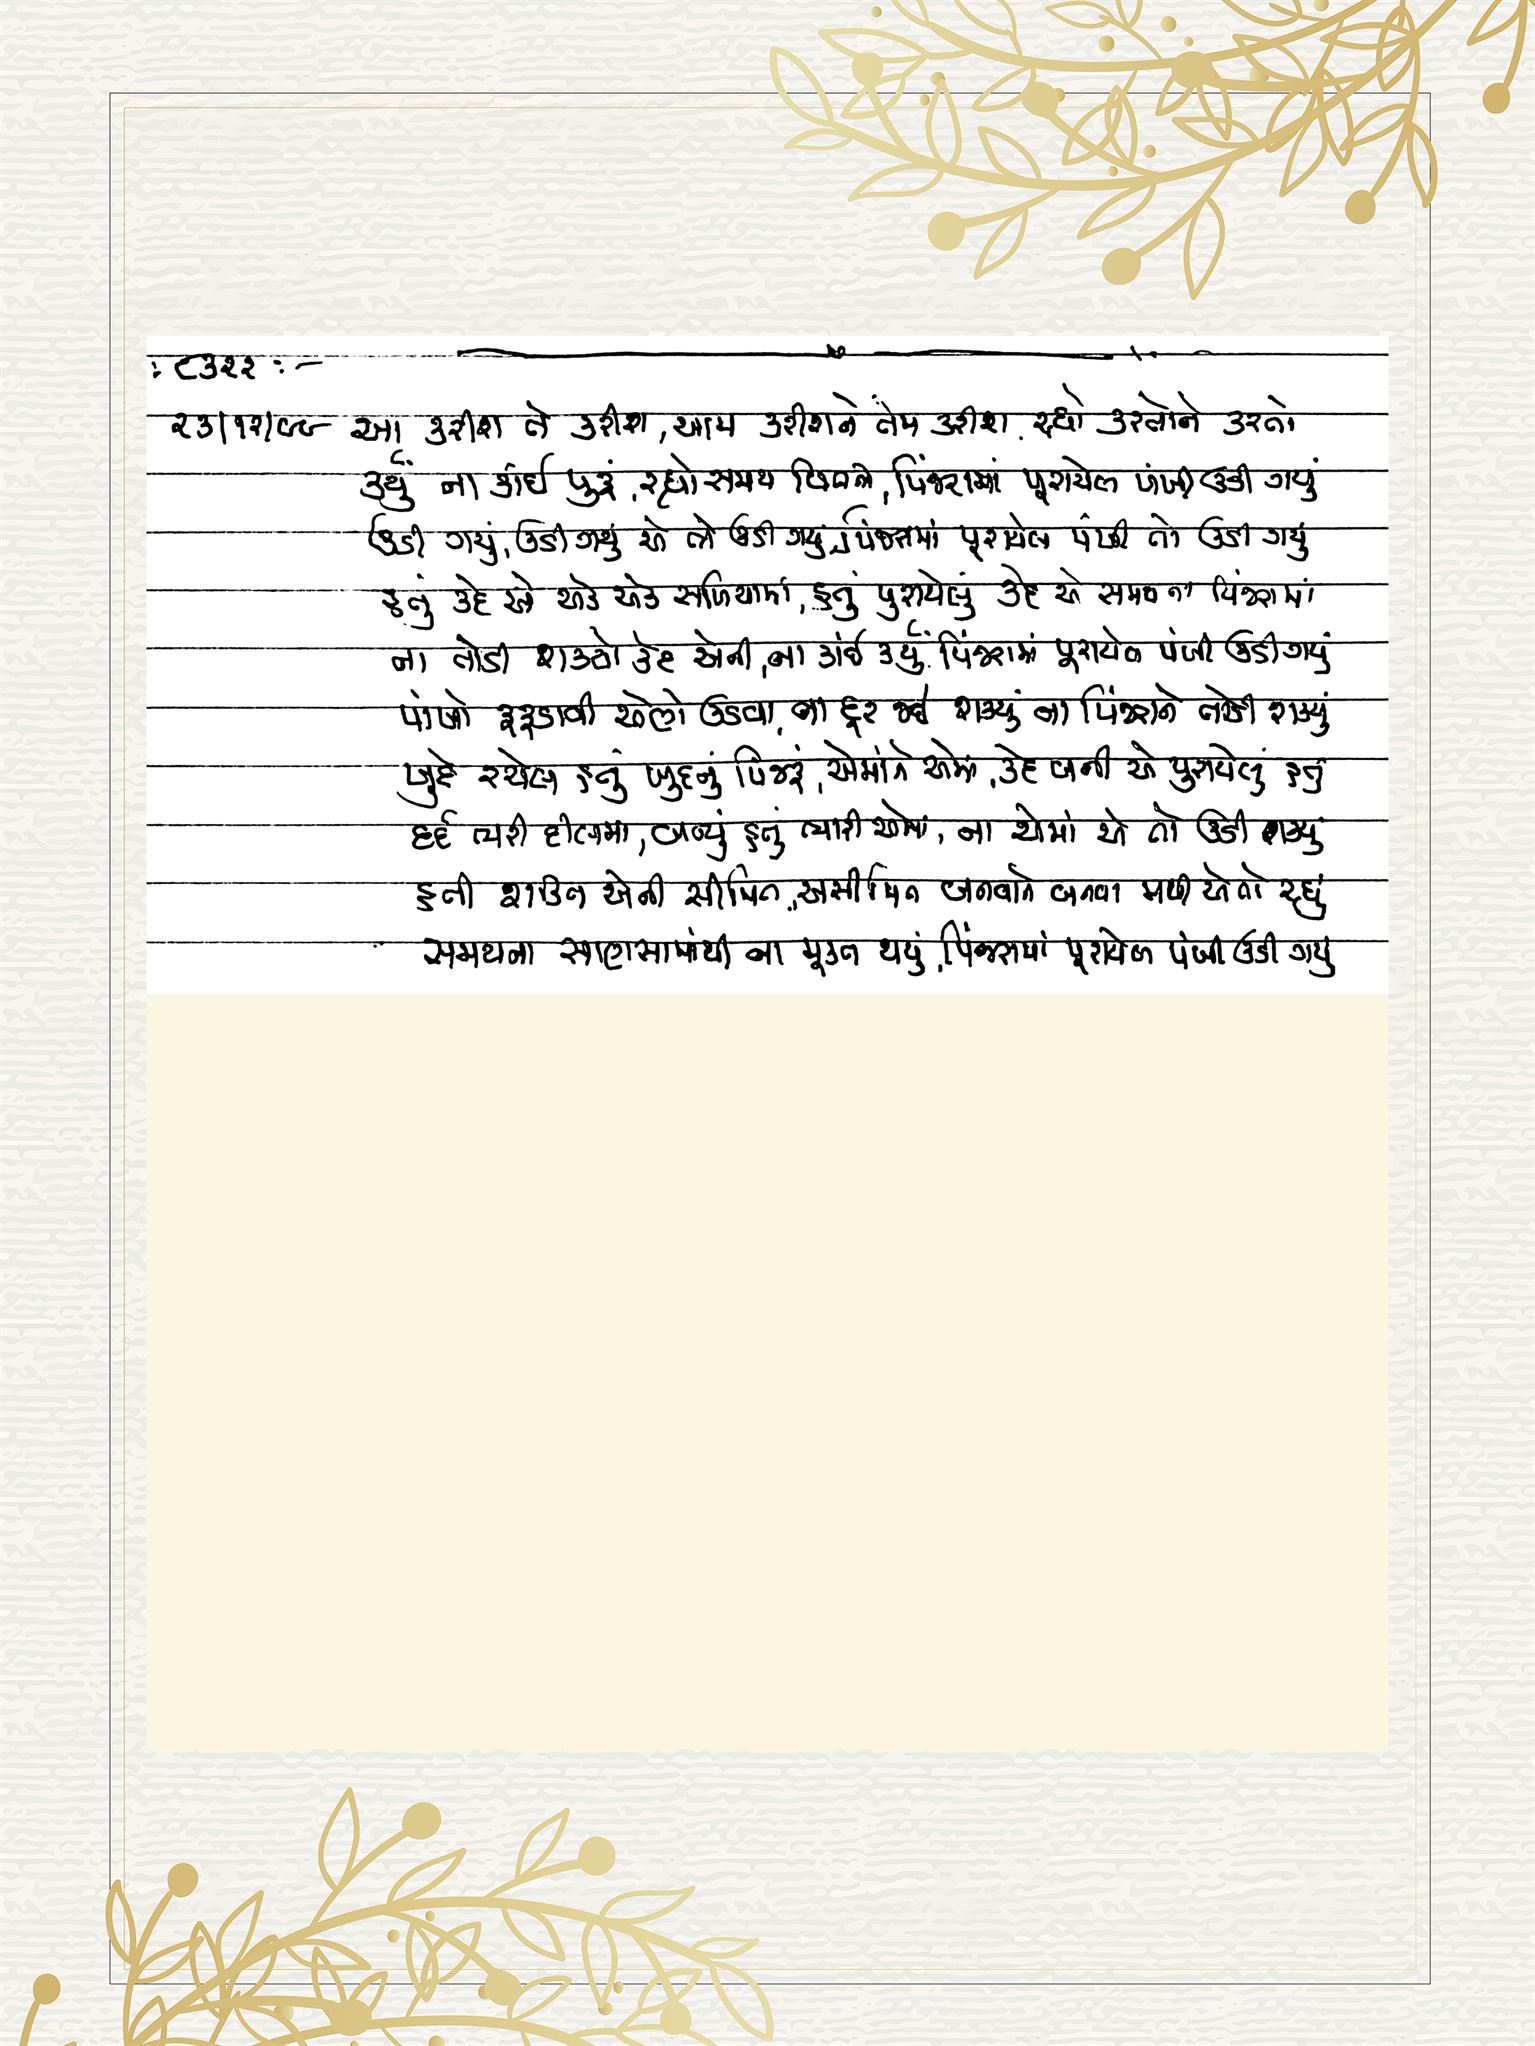 : ૮૩૨૨ : –
૨૩/૧૨/૯૯ આ કરીશ તે કરીશ, આમ કરીશને તેમ કરીશ. રહ્યો કરતોને કરતો
કર્યું ના કાંઈ પુરૂં, રહ્યો સમય વિતતો, પિંજરામાં પૂરાયેલ પંખી ઉડી ગયું
ઉડી ગયું, ઉડી ગયું એ તો ઉડી ગયું, પિંજરામાં પૂરાયેલ પંખી તો ઉડી ગયું
હતું કેદ એ એક એક સળિયામાં, હતું પુરાયેલું કેદ એ સમયના પિંજરામાં
ના તોડી શક્યો કેદ એની, ના કાંઈ કર્યું. પિંજરામાં પૂરાયેલ પંખી ઉડી ગયું
પાંખો ફફડાવી એણે ઉડવા, ના દૂર જઈ શક્યું ના પિંજરાને તોડી શક્યું
ખુદે રચેલ હતું ખુદનું પિંજરૂં, એમાંને એમાં, કેદ બની એ પુરાયેલું હતું
દર્દ ત્યારી દીલમાં, બન્યું હતું ત્યારી એમાં, ના એમાં એ તો ઉડી શક્યું
હતી શક્તિ એની સીમિત, અસીમિત બનવાને બનવા મથી એતો રહ્યું
સમયના સાણસામાંથી ના મૂક્ત થયું, પિંજરામાં પૂરાયેલ પંખી ઉડી ગયું